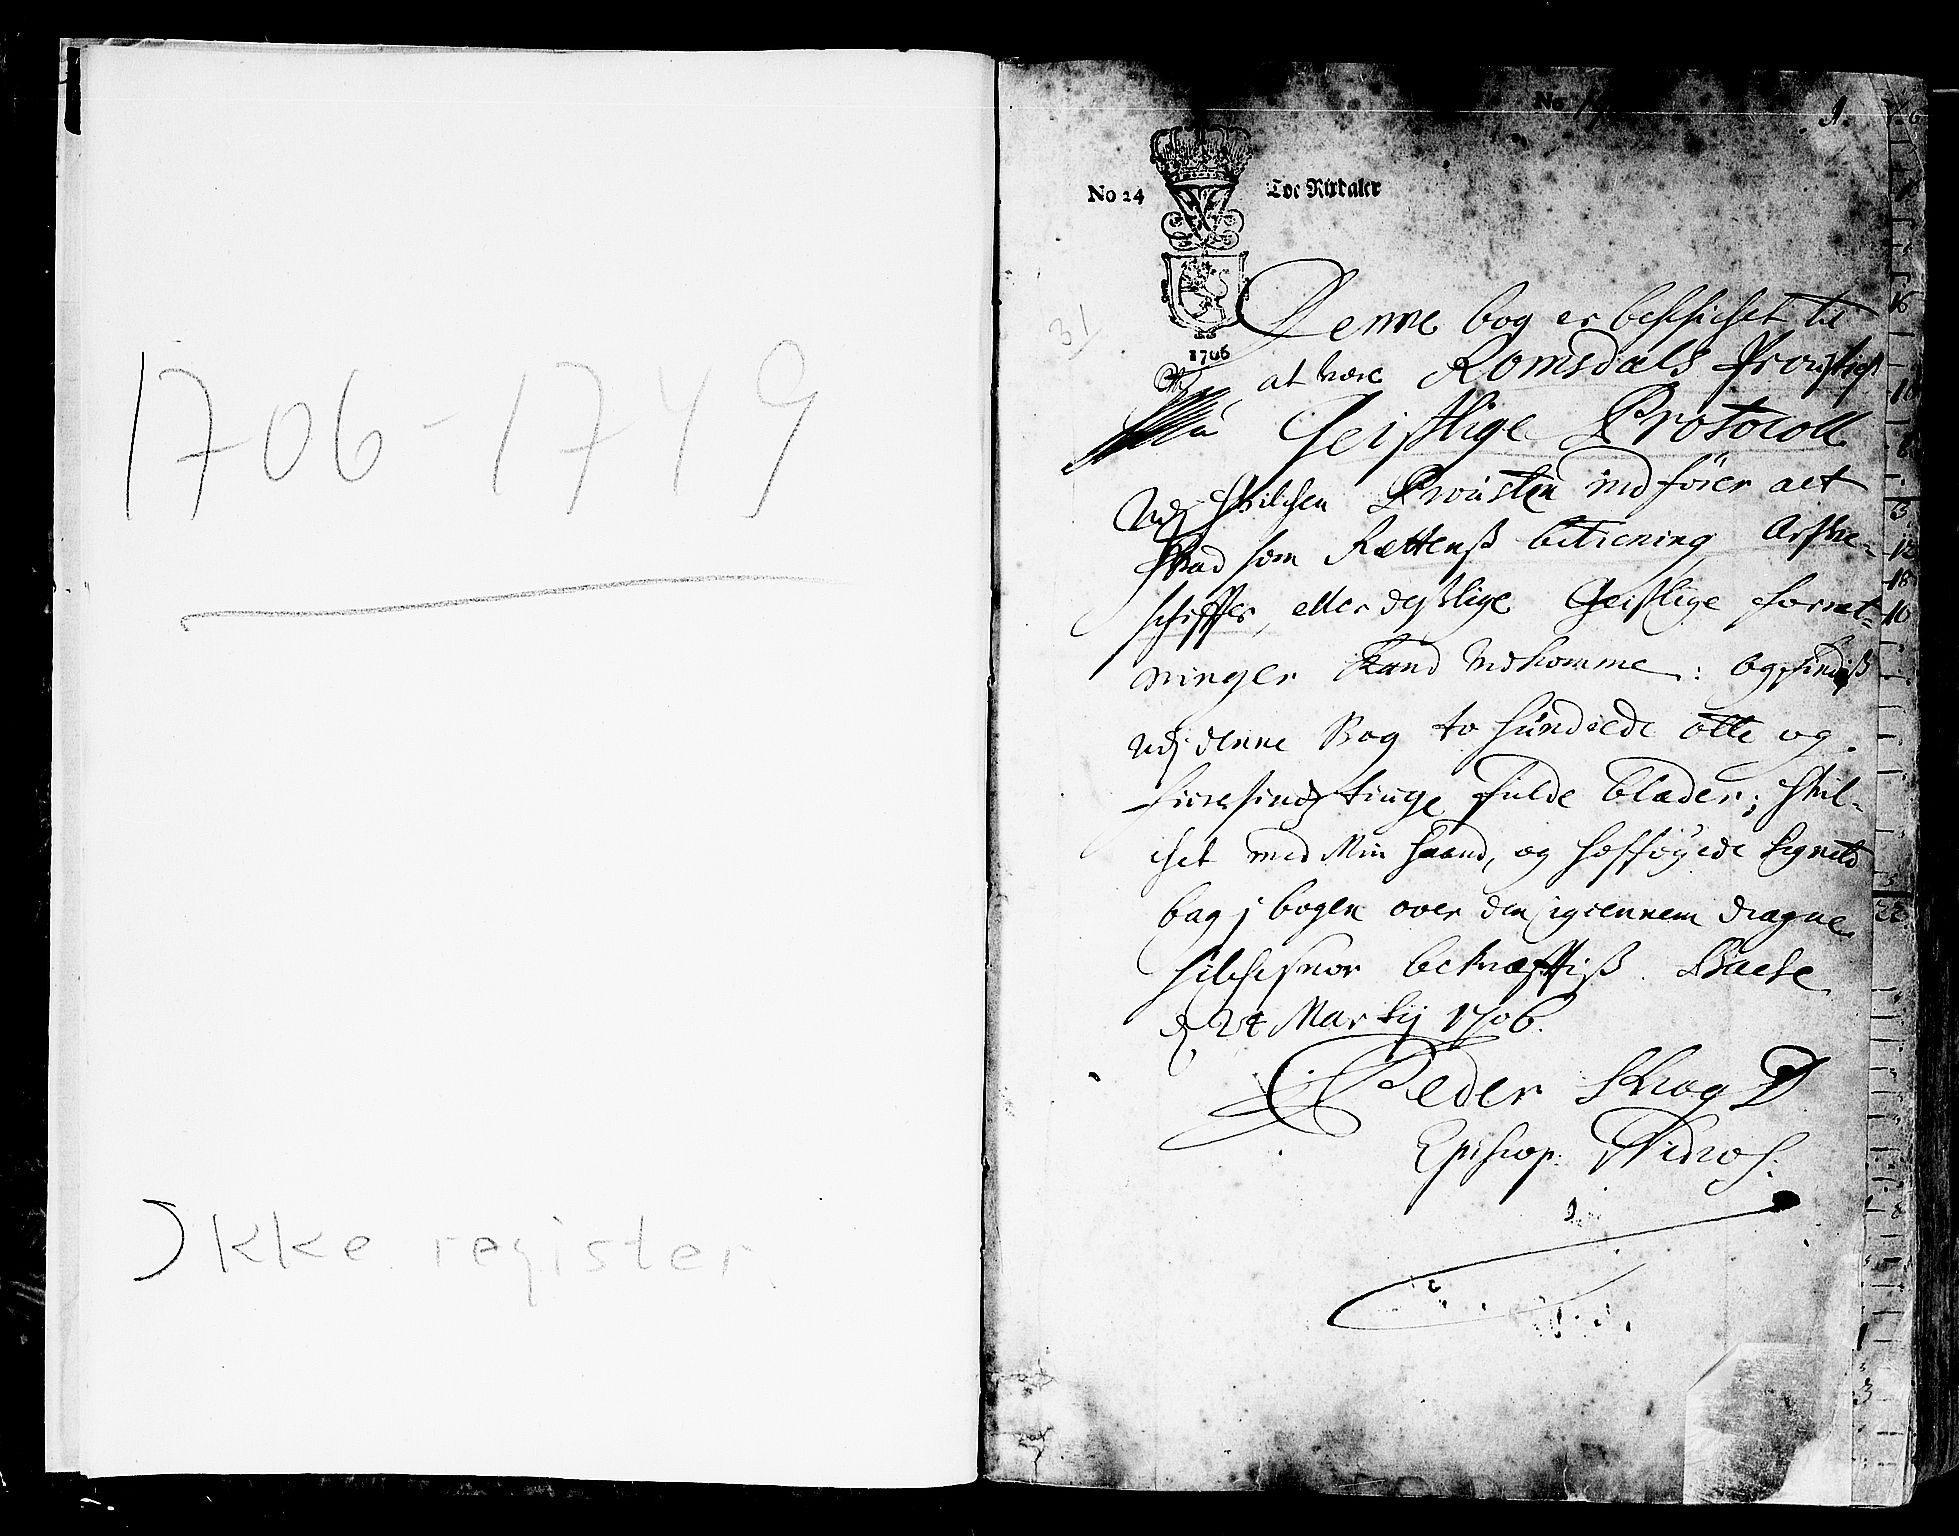 1706 - 1749
Ikke register.
No
1.
No 24
Toe Rixdaler
1706
31
Denne bog er beschichet til
at være Romsdals Prousties
Geistlige Protocoll
Udj Hvilchen Prousten indfører alt
Hvad som Rættens betiening, Arfve-
schiffter, eller deslige Geistlige forret-
ninger Kand vedkomme: og findis
udj denne Bog to hundrede otte og
fiiresinds tiuge fulde blader; Hvil-
chet med Min Haand, og hosføyede Signete
bag i bogen over den igiennem dragne
silchesnor bekræfftis.
d. 24 Martij 1706.
Peder Krog D
Episcop: Nidros: